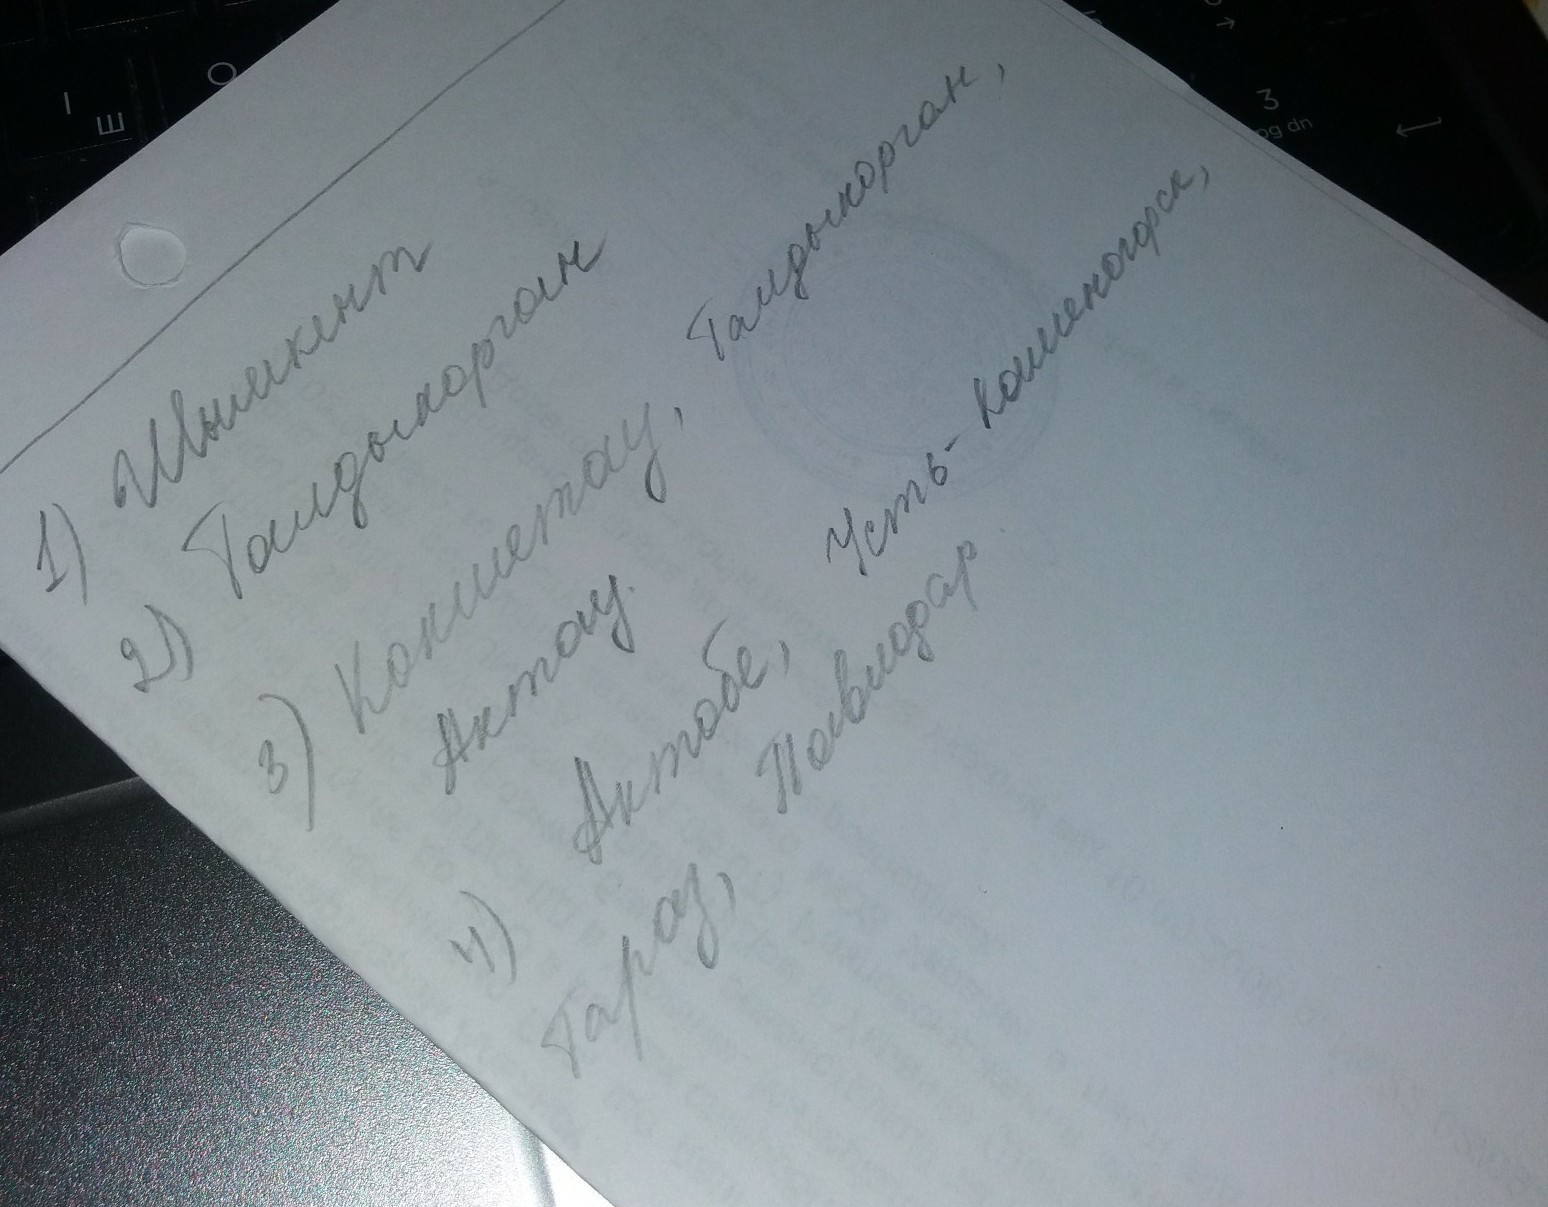 1) Шымкент
2) Талдыкорган
3) Кокшетау, Талдыкорган,
Актау.
4) Актобе, Усть-Каменогорск,
Тараз, Павлодар
I
Ш
О
3
pg dn